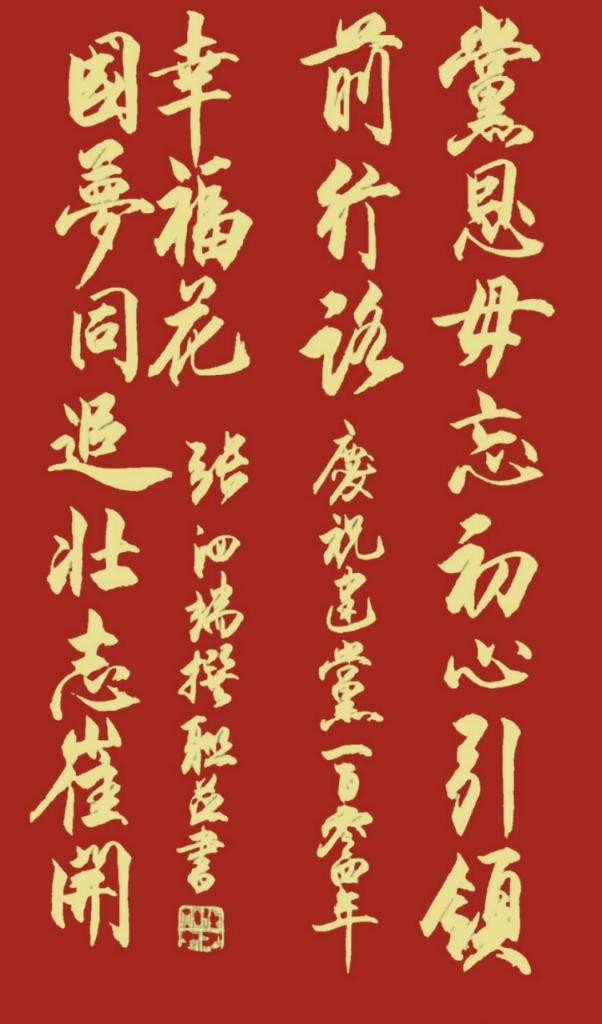 黨恩毋忘初心引領
前行路
慶祝建黨一百零四年
國夢同追壯志崔開
幸福花
张泗端撰联並書